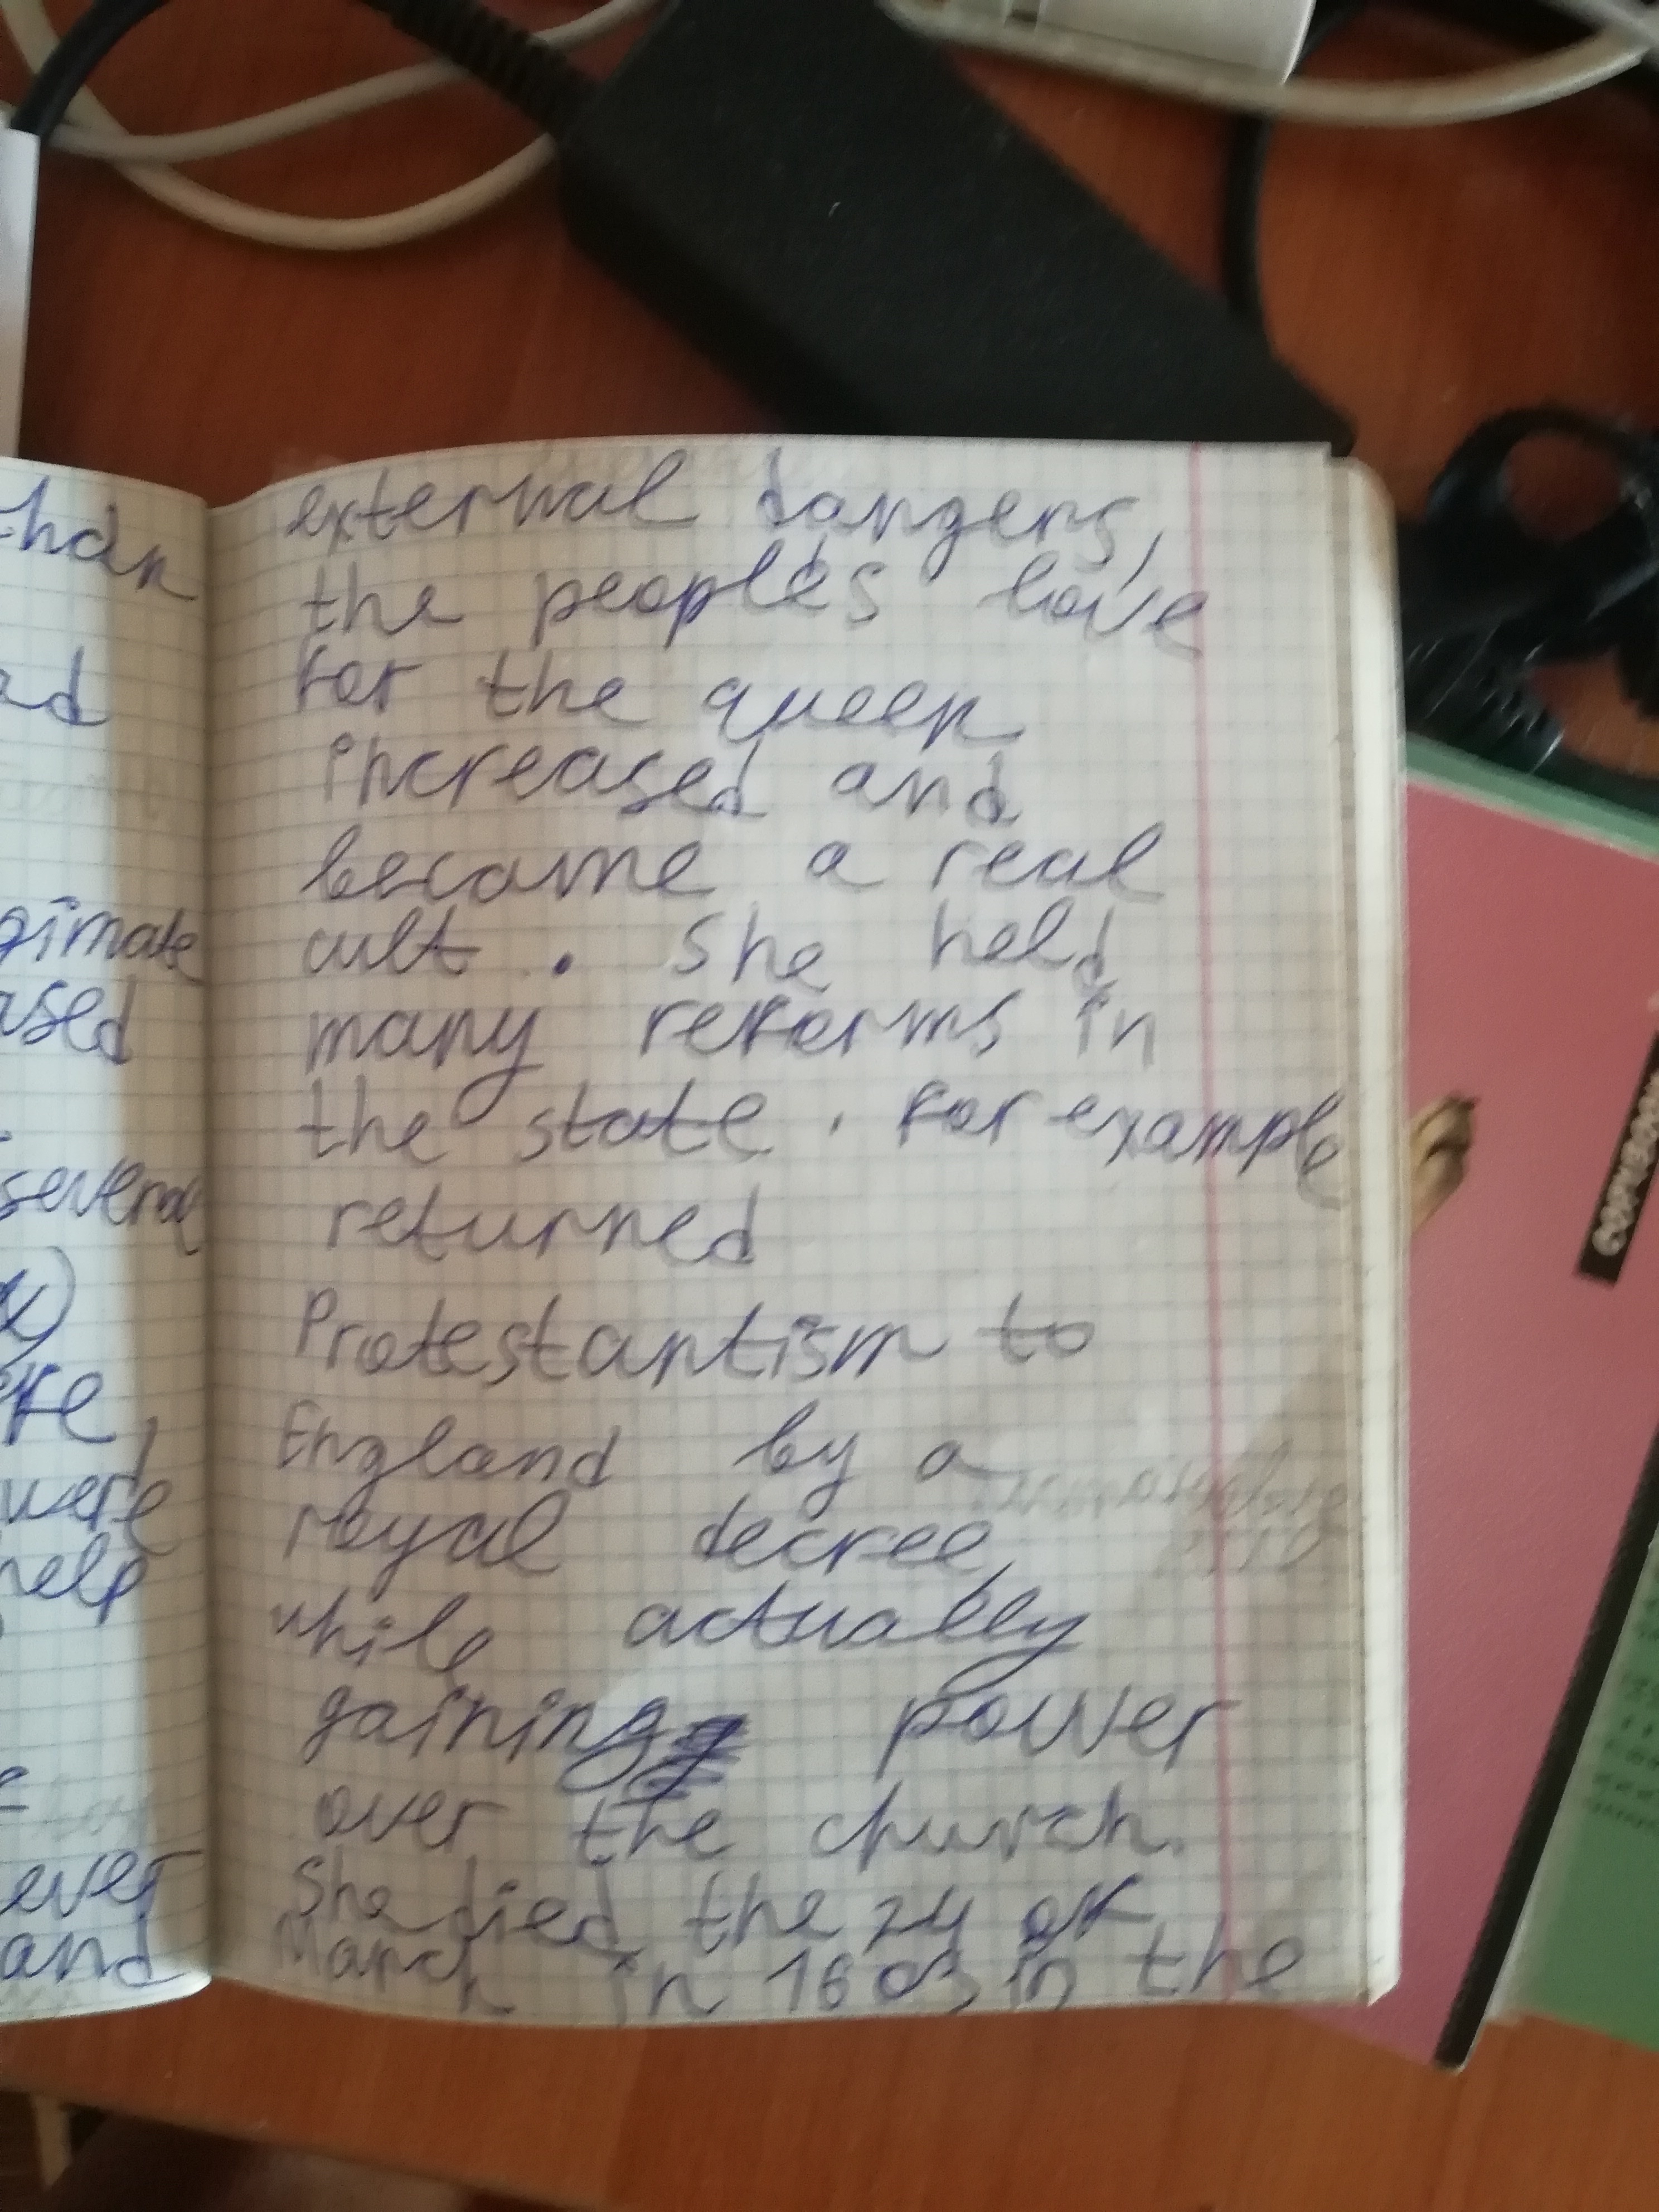 than
gimate
ased
several
were
help
ever
and
external dangers,
the people's love
for the queen
increased and
became a real
cult. She held
many reforms in
the state. For example
returned
Protestantism to
England by a
royal decree,
while actually
gaining power
over the church.
She died the 24 of
March in 1603 in the
COPYBOOK